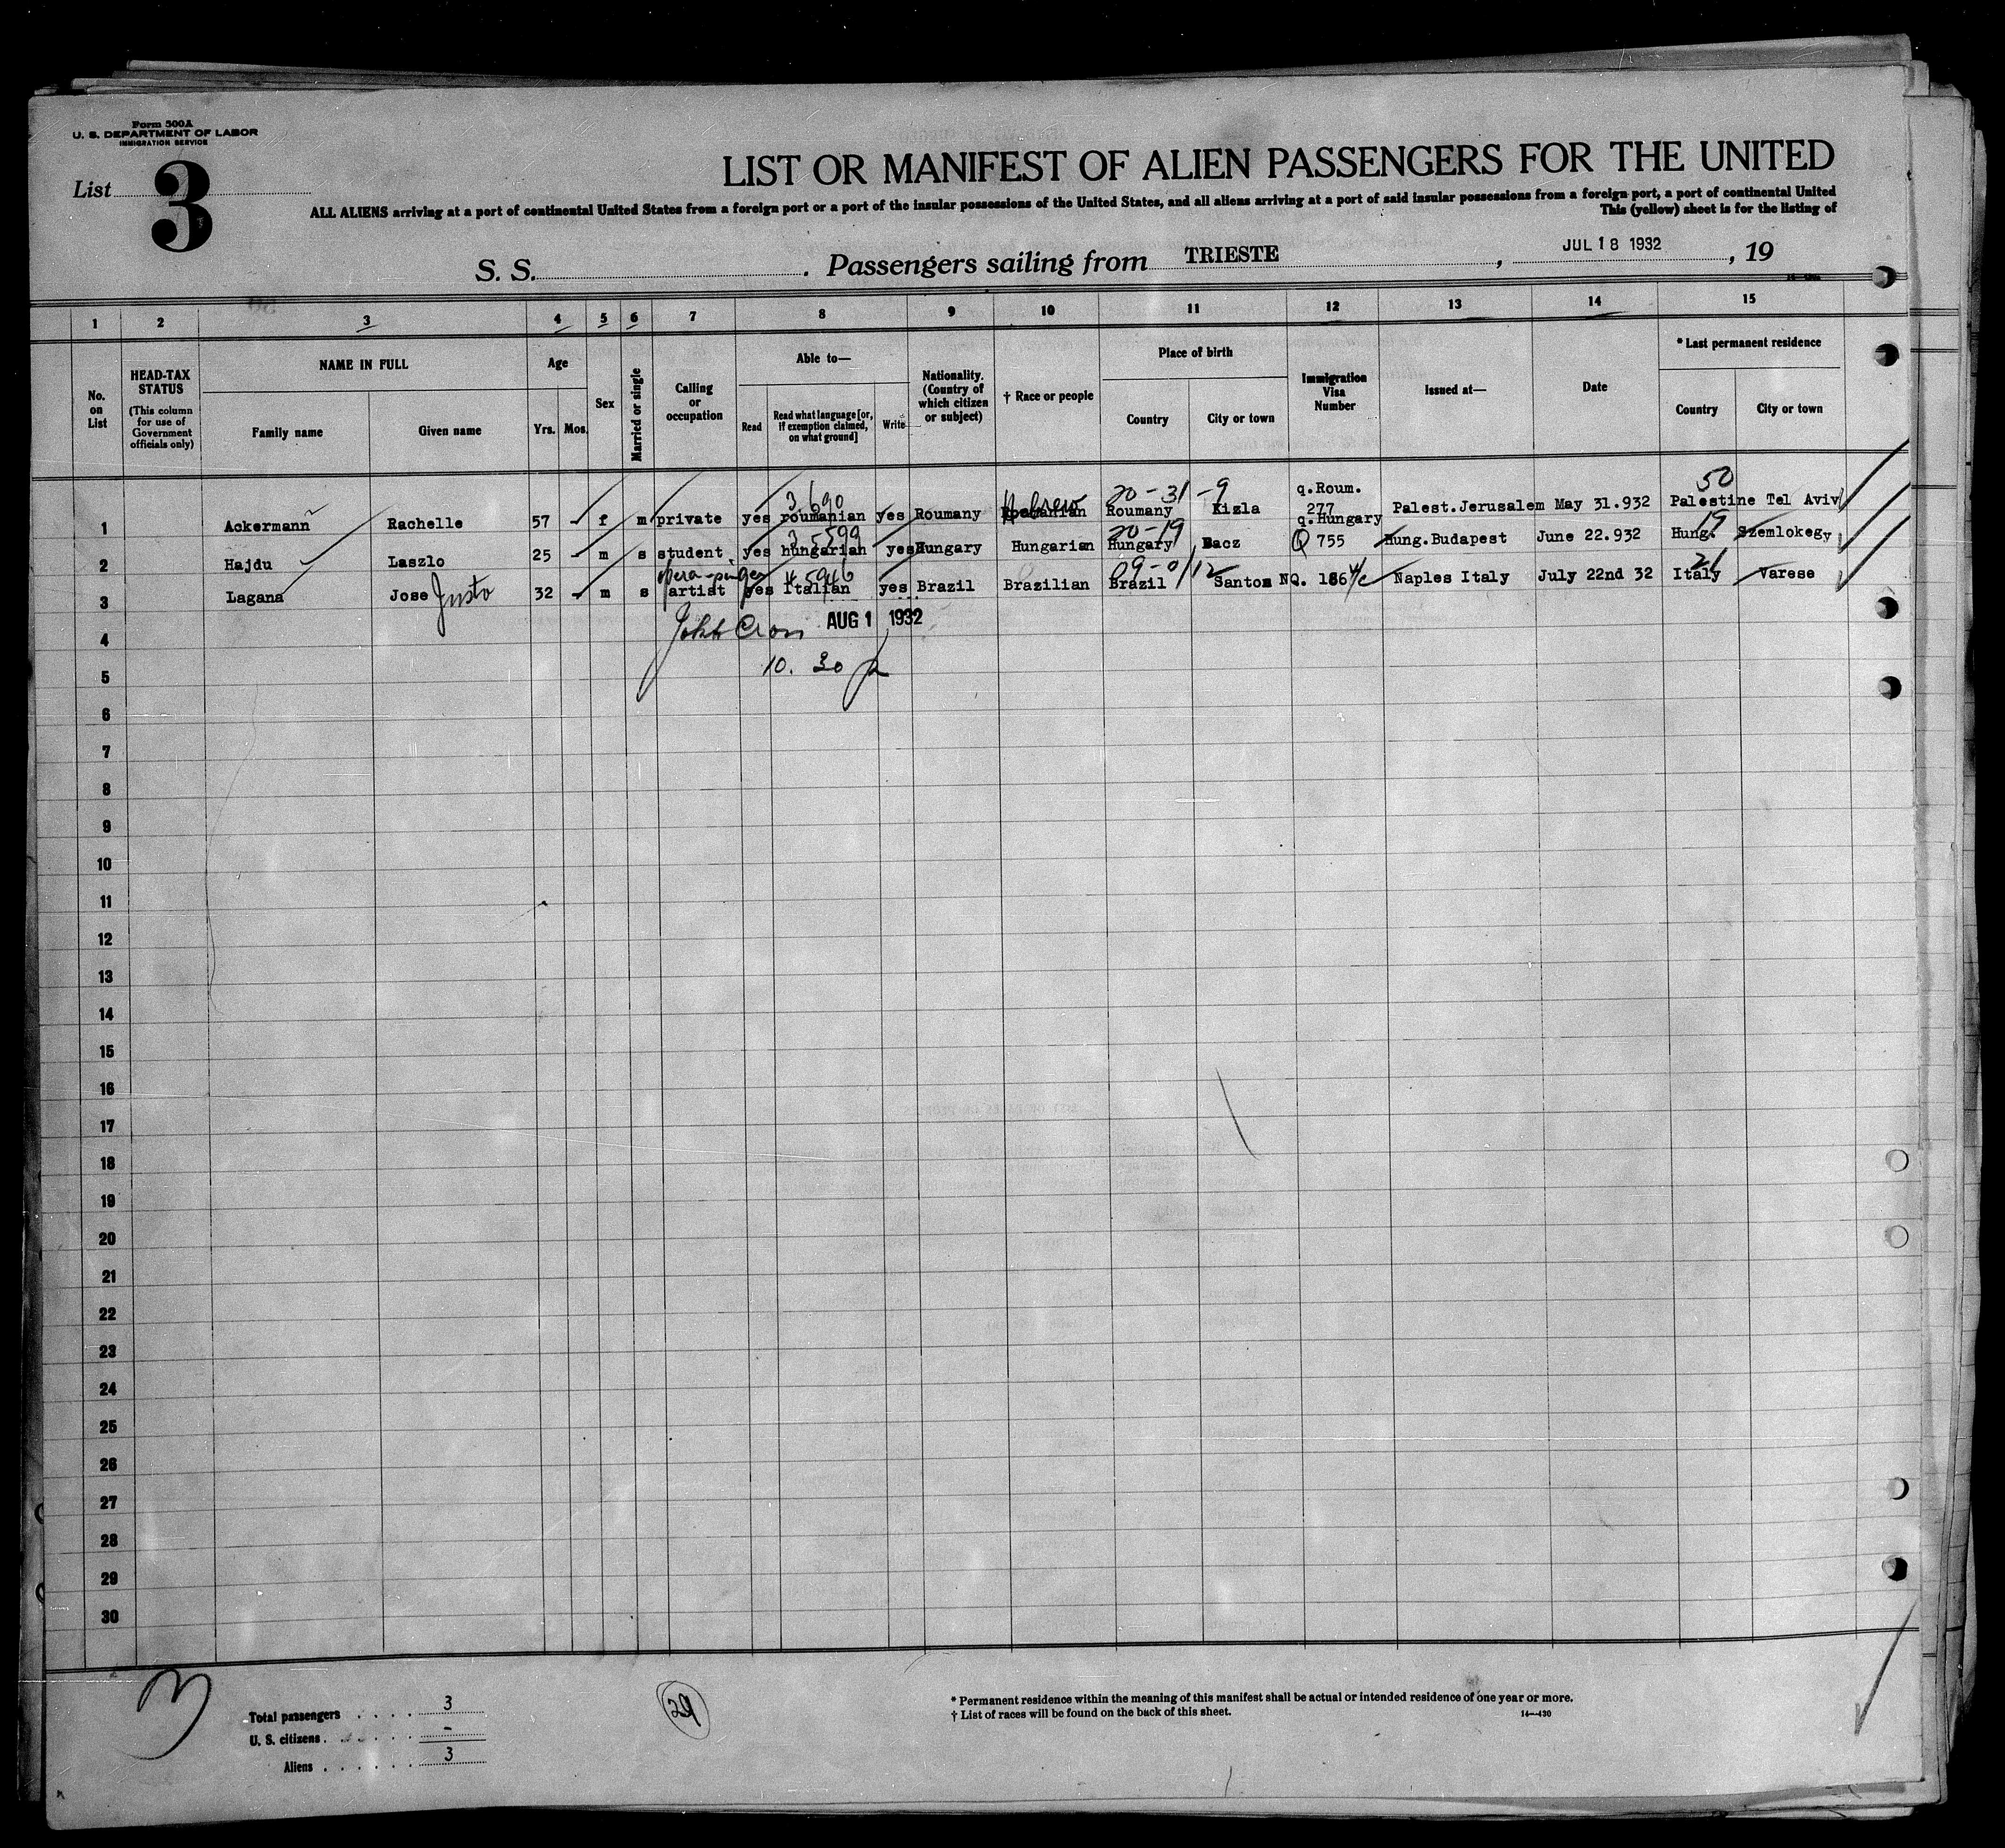 Form 500A
U. S. DEPARTMENT OF LABOR
IMMIGRATION SERVICE
List 3
LIST OR MANIFEST OF ALIEN PASSENGERS FOR THE UNITED
ALL ALIENS arriving at a port of continental United States from a foreign port or a port of the insular possessions of the United States, and all aliens arriving at a port of said insular possessions from a foreign port, a port of continental United
This (yellow) sheet is for the listing of
S. S. . Passengers sailing from TRIESTE , JUL 18 1932 , 19
1 2 3 4 5 6 7 8 9 10 11 12 13 14 15
No. on List
HEAD-TAX STATUS (This column for use of Government officials only)
NAME IN FULL
Family name Given name
Age
Yrs. Mos.
Sex
Married or single
Calling or occupation
Able to—
Read Read what language [or, if exemption claimed, on what ground] Write
Nationality. (Country of which citizen or subject)
† Race or people
Place of birth
Country City or town
Immigration Visa Number
Issued at—
Date
* Last permanent residence
Country City or town
3 690 20-31-9 q.Roum. 50
1 Ackermann Rachelle 57 - f m private yes roumanian yes Roumany Hebrew Roumany Kizla 277 Palest.Jerusalem May 31.932 Palestine Tel Aviv
3 5599 20-19 q.Hungary 19
2 Hajdu Laszlo 25 - m s student yes hungarian yes Hungary Hungarian Hungary Bacz Q 755 Hung.Budapest June 22.932 Hung. Szemlokegy
opera-singer 4 5946 09-0/12 21
3 Lagana Jose Justo 32 - m s artist yes Italian yes Brazil Brazilian Brazil Santos NQ. 186 Naples Italy July 22nd 32 Italy Varese
4 AUG 1 1932
5 10. 30
6
7
8
9
10
11
12
13
14
15
16
17
18
19
20
21
22
23
24
25
26
27
28
29
30
3
Total passengers . . . . 3
U. S. citizens . . . . . -
Aliens . . . . . . 3
29
* Permanent residence within the meaning of this manifest shall be actual or intended residence of one year or more.
† List of races will be found on the back of this sheet.
14—430